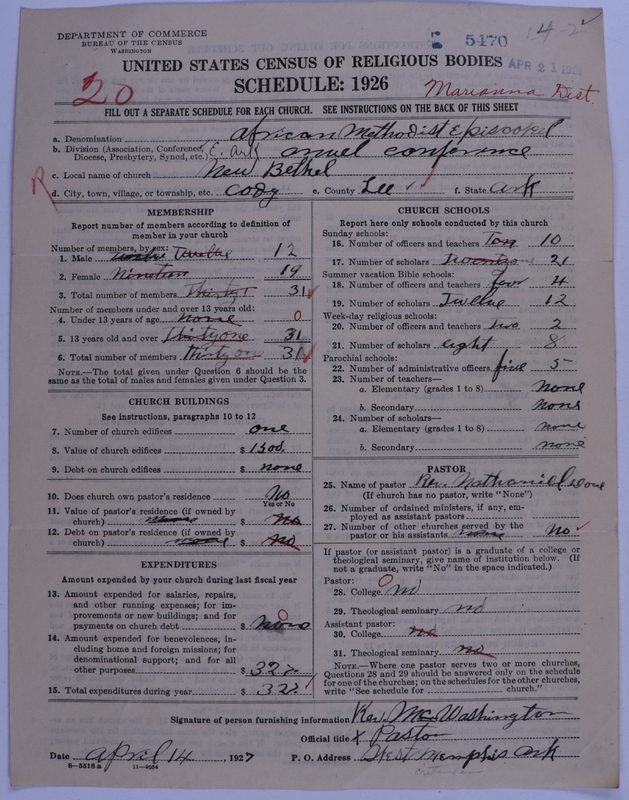 DEPARTMENT OF COMMERCE
BUREAU OF THE CENSUS
WASHINGTON
5470
14-2
APR 21 1927
UNITED STATES CENSUS OF RELIGIOUS BODIES
SCHEDULE: 1926
20
Marianna Dist.
FILL OUT A SEPARATE SCHEDULE FOR EACH CHURCH. SEE INSTRUCTIONS ON THE BACK OF THIS SHEET
a. Denomination African Methodist Episcokel
b. Division (Association, Conference, Diocese, Presbytery, Synod, etc.) E. Ark anuel conference
c. Local name of church New Bethel
R
d. City, town, village, or township, etc. Cody e. County Lee f. State Ark
MEMBERSHIP
Report number of members according to definition of
member in your church
Number of members, by sex:
1. Male Twelve 12
2. Female Nineteen 19
3. Total number of members Thirty 1 31
Number of members under and over 13 years old:
4. Under 13 years of age none 0
5. 13 years old and over Thirty one 31
6. Total number of members thirty on 31
NOTE.—The total given under Question 6 should be
same as the total of males and females given under Question 3.
CHURCH BUILDINGS
See instructions, paragraphs 10 to 12
7. Number of church edifices one
8. Value of church edifices $ 1500.
9. Debt on church edifices $ none
10. Does church own pastor's residence No
Yes or No
11. Value of pastor's residence (if owned by
church) none $ no
12. Debt on pastor's residence (if owned by
church) none $ no
EXPENDITURES
Amount expended by your church during last fiscal year
13. Amount expended for salaries, repairs,
and other running expenses; for im-
provements or new buildings; and for
payments on church debt $ none 0
14. Amount expended for benevolences, in-
cluding home and foreign missions; for
denominational support; and for all
other purposes $ 32
15. Total expenditures during year $ 32
CHURCH SCHOOLS
Report here only schools conducted by this church
Sunday schools:
16. Number of officers and teachers Ten 10
17. Number of scholars 21
Summer vacation Bible schools:
18. Number of officers and teachers four 4
19. Number of scholars Twelve 12
Week-day religious schools:
20. Number of officers and teachers two 2
21. Number of scholars eight 8
Parochial schools:
22. Number of administrative officers five 5
23. Number of teachers—
a. Elementary (grades 1 to 8) none
b. Secondary none
24. Number of scholars—
a. Elementary (grades 1 to 8) none
b. Secondary none
PASTOR
25. Name of pastor Rev. Nathaniel
(If church has no pastor, write "None")
26. Number of ordained ministers, if any, em-
ployed as assistant pastors
27. Number of other churches served by the
pastor or his assistants none No
If pastor (or assistant pastor) is a graduate of a college or
theological seminary, give name of institution below. (If
not a graduate, write "No" in the space indicated.)
Pastor:
28. College no
29. Theological seminary no
Assistant pastor:
30. College no
31. Theological seminary no
NOTE.—Where one pastor serves two or more churches,
Questions 28 and 29 should be answered only on the schedule
for one of the churches; on the schedules for the other churches,
write "See schedule for church."
Signature of person furnishing information Rev. Mc Washington
Official title x Pastor
Date April 14, 1927 P. O. Address West Memphis Ark
8—5518 a 11—9054